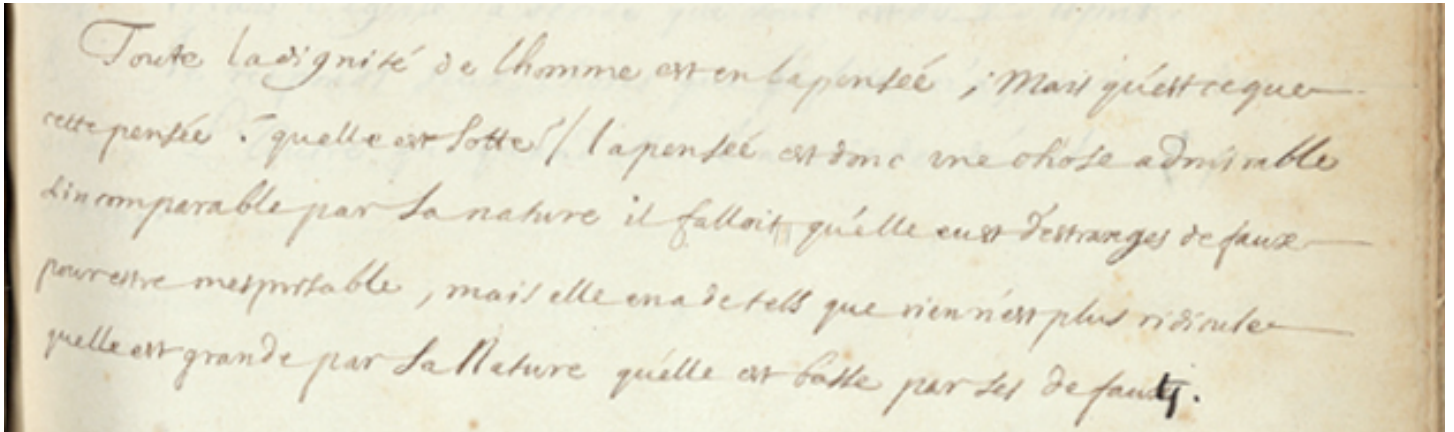 Toute la dignité de lhomme est en la pensée, Mais qu'est ce que
cette pensée ? quelle est sotte / la pensée est donc une chose admirable
& incomparable par sa nature il falloit qu'elle eust d'estranges defaux
pour estre mesprisable, mais elle en a de tels que rien n'est plus ridicule
quelle est grande par sa Nature qu'elle est basse par ses defauts.